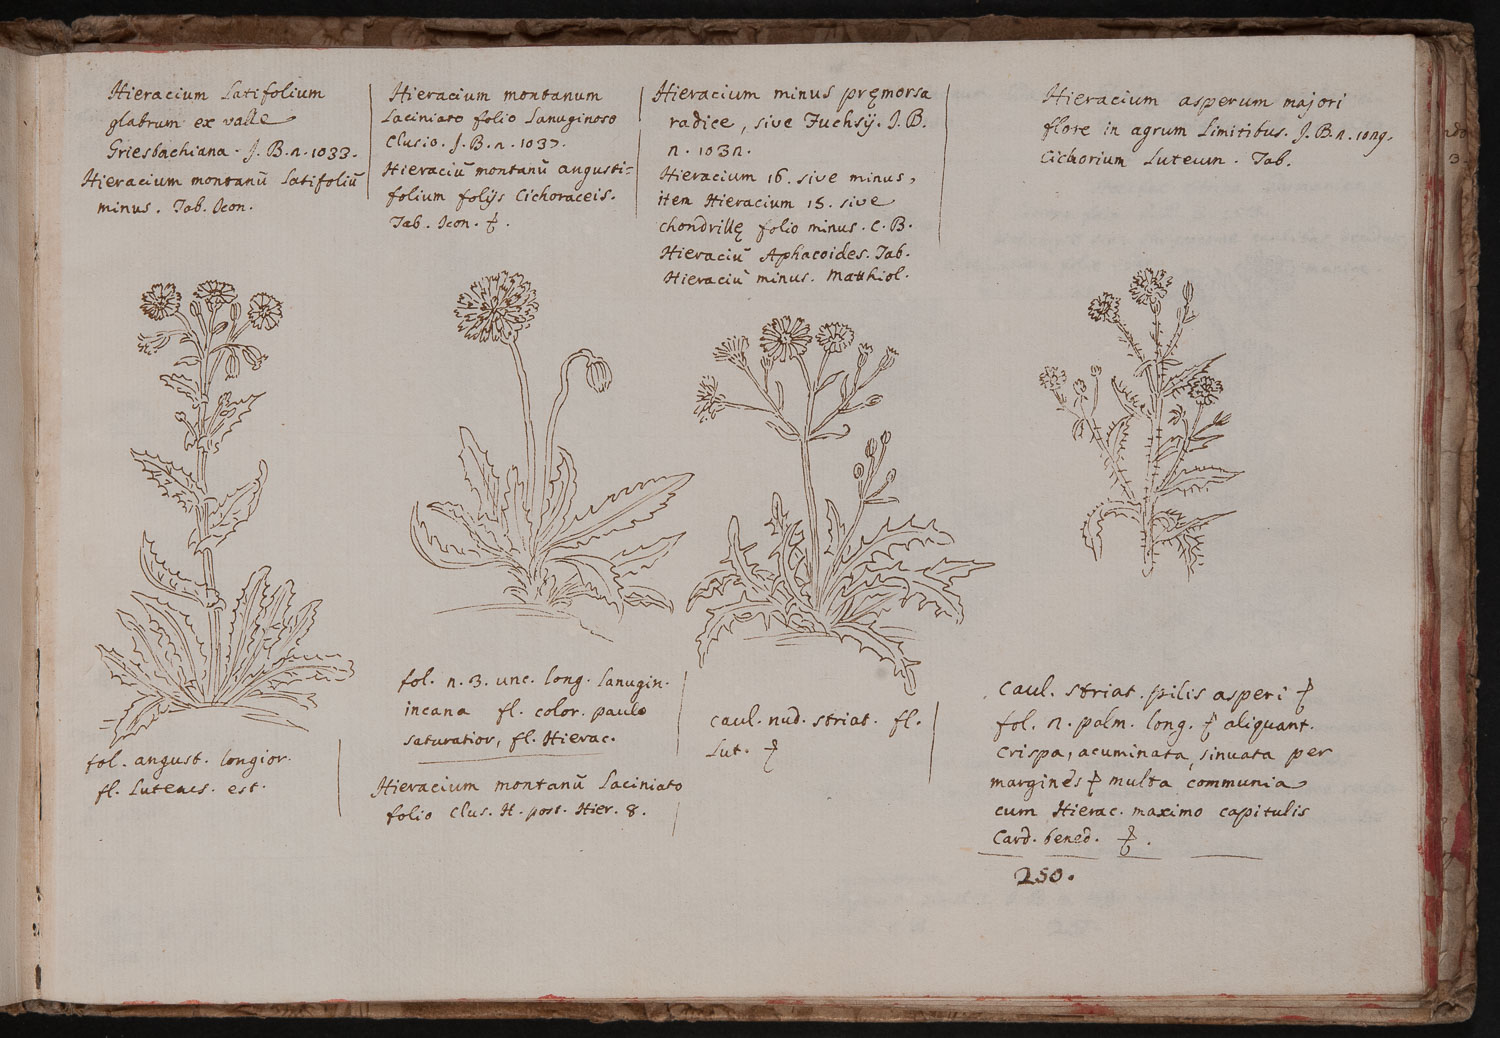 Hieracium Latifolium
glabrum ex valle
Griesbachiana. J.B.n.1033.
Hieracium montanū Latifoliū
minus. Tab. Icon.
fol. angust. longior.
fl. Lutenes. est.
Hieracium montanum
Laciniato folio Lanuginoso
Clusio. J.B.n.1037.
Hieraciū montanū angusti=
folium folijs Cichoraceis.
Tab. Icon. ⁊.
fol. n.3. unc. long. Lanugin.
incana fl. color. paulo
saturatior, fl. Hierac.
Hieracium montanū Laciniato
folio Clus. H. post. Hier. 8.
Hieracium minus pręmorsa
radice, sive Fuchsij. J.B.
n. 1031.
Hieracium 16. sive minus,
iten Hieracium 15. sive
chondrillę folio minus. C.B.
Hieraciū Aphacoides. Tab.
Hieraciū minus. Matthiol.
caul. nud. striat. fl.
Lut. ⁊
Hieracium asperum majori
flore in agrum Limitibus. J.B.n.1029.
Cichorium Luteum. Tab.
Caul. striat. pilis asperi ⁊
fol. 2. palm. long. ⁊ aliquant.
Crispa, acuminata, sinuata per
margines ⁊ multa communia
cum Hierac. maximo capitulis
Card. bened. ⁊.
250.